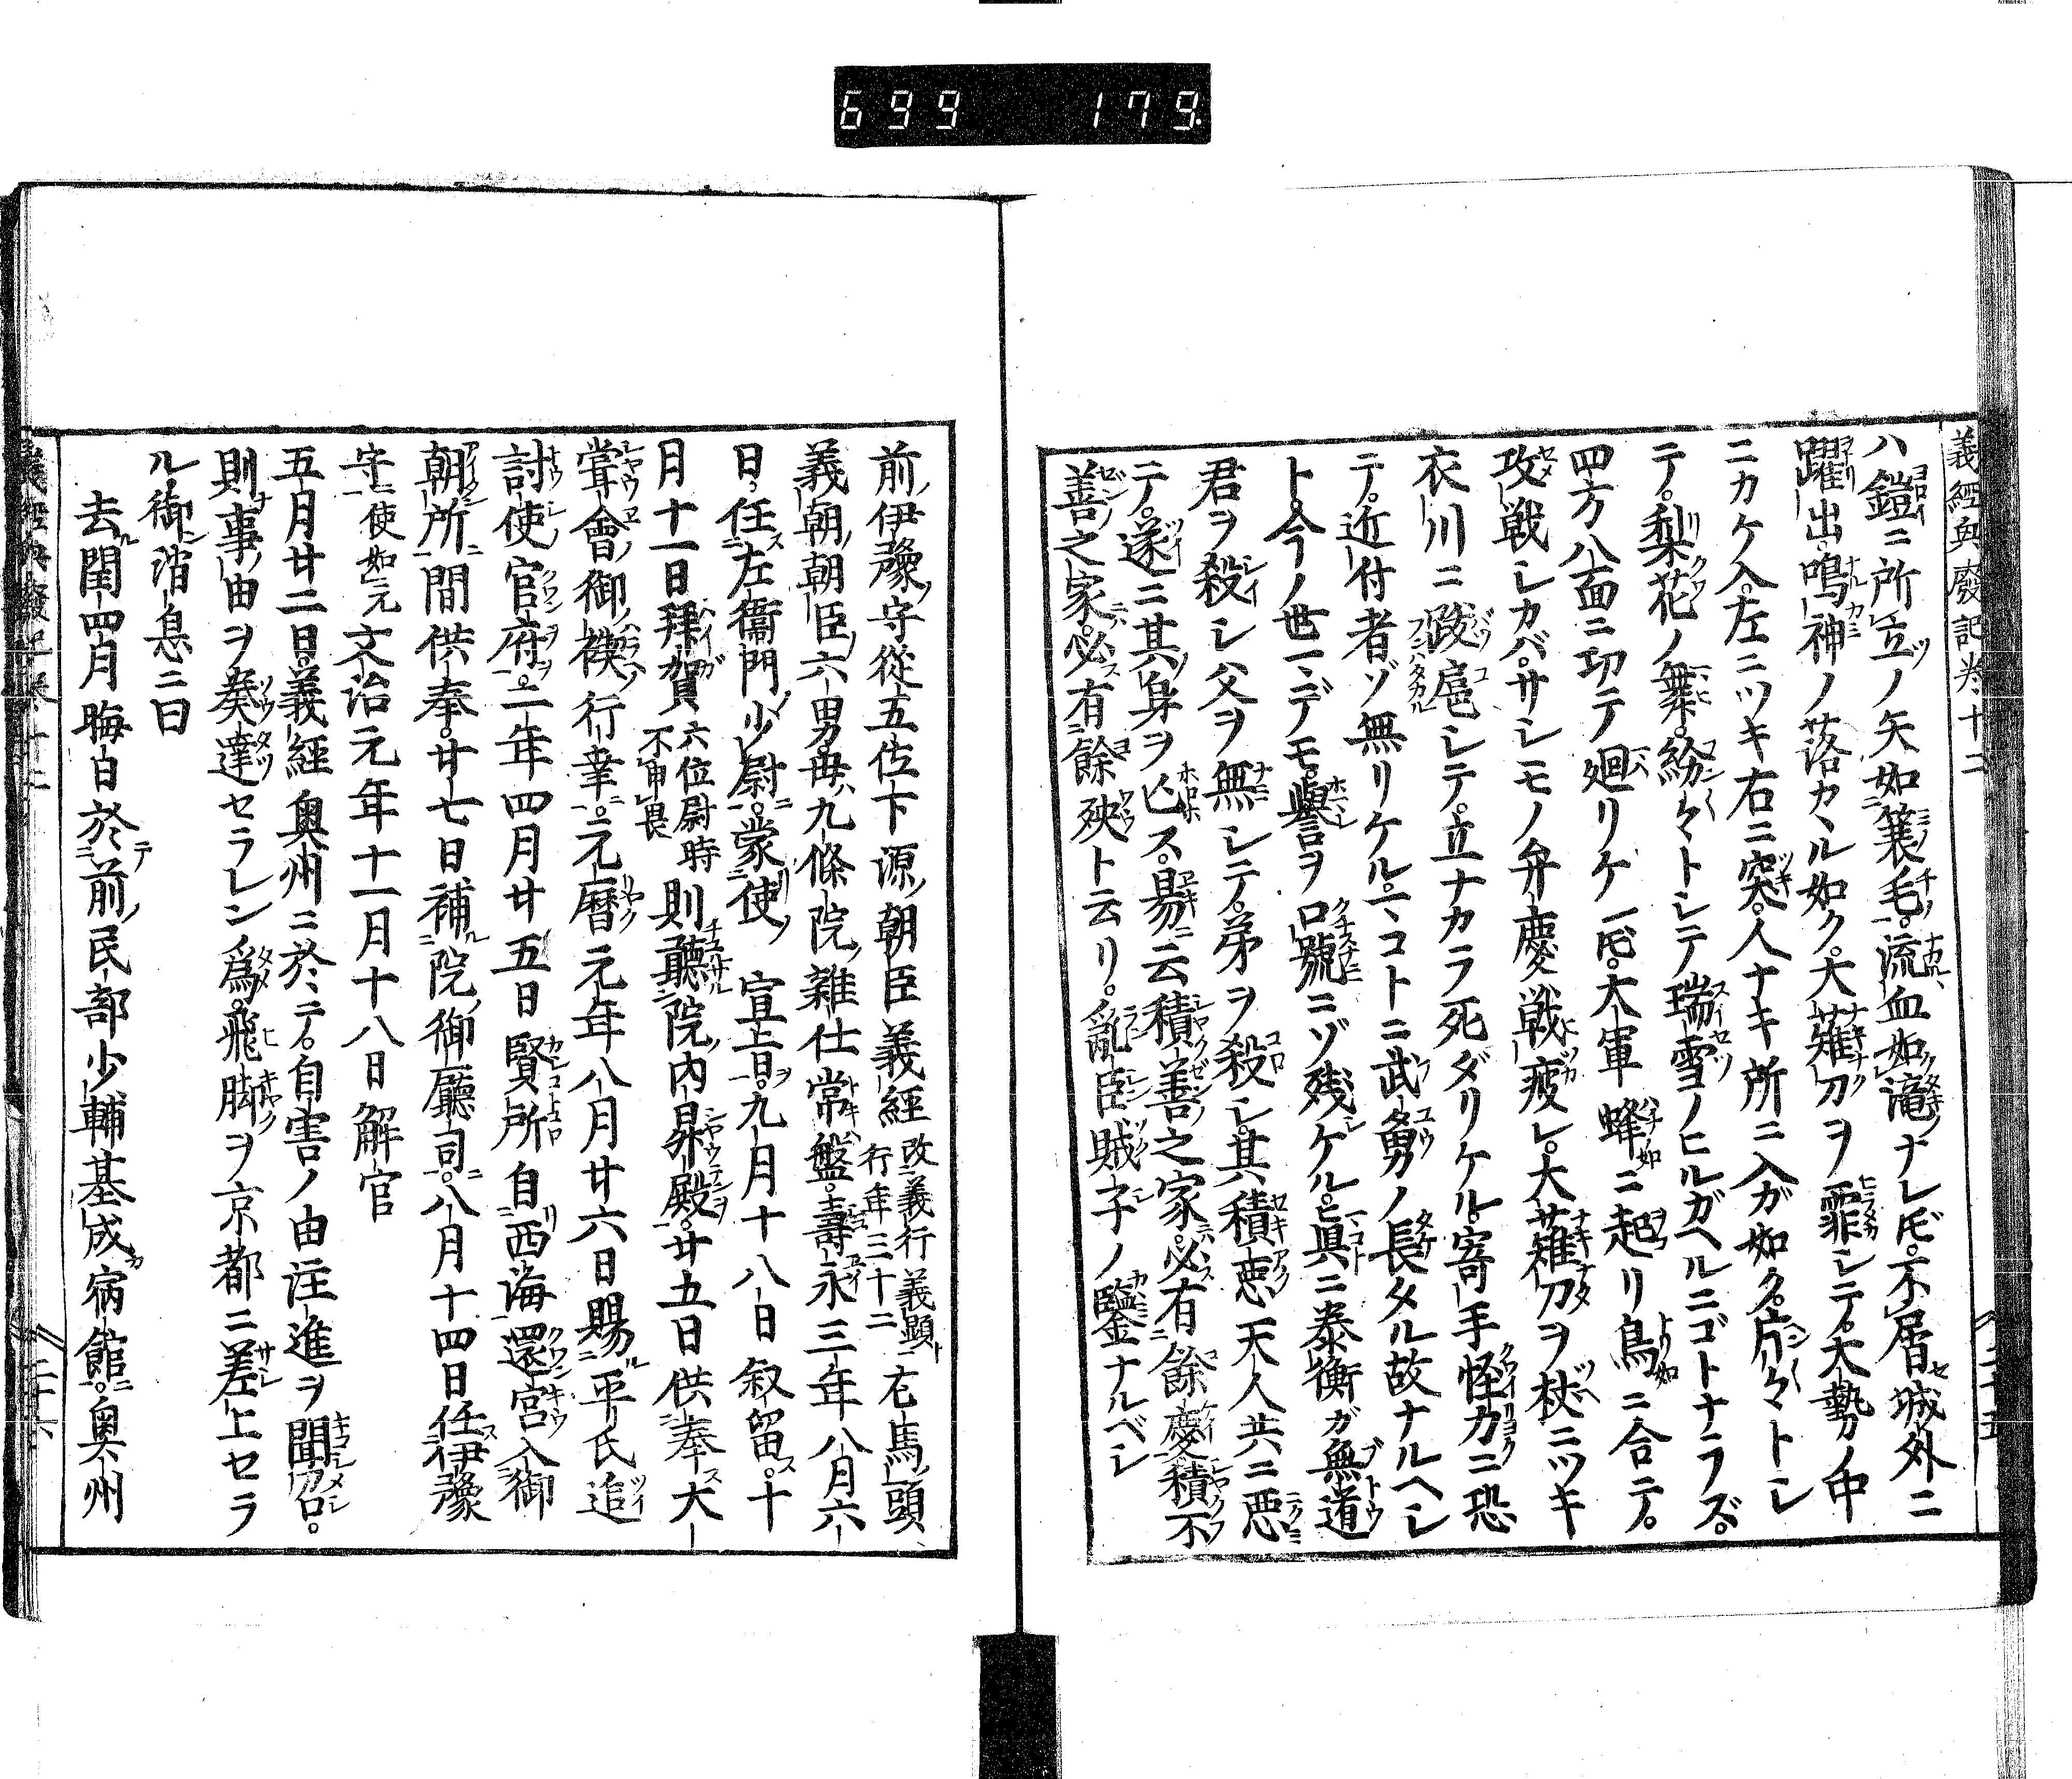 699 179
義經興廢記卷十二
ハ鎧ニ所立ノ矢如簑毛。流血如滝ナレ𪜈。不屑城外ニ
躍出。鳴神ノ落カヽル如ク。大薙刀ヲ霏シテ。大勢ノ中
ニカケ入。左ニツキ右ニ突。人ナキ所ニ入ガ如ク。片々トシ
テ。梨花ノ舞。紛々トシテ瑞雪ノヒルガヘルニゴトナラズ。
四方八面ニ切テ廻リケレ𪜈。大軍蜂ニ起リ鳥ニ合テ。
攻戰シカバ。サシモノ弁慶戰疲レ。大薙刀ヲ杖ニツキ
衣川ニ跋扈シテ。立ナカラ死ダリケル。寄手怪力ニ恐
テ。近付者ゾ無リケル。コトニ武勇ノ長タル故ナルヘシ
ト。今ノ世マデモ。譽ヲ口號ニゾ残ケル。眞ニ泰衡ガ無道
君ヲ殺シ父ヲ無シテ。弟ヲ殺シ。其積悪天人共ニ惡
テ。遂ニ其身ヲ亡ス。易云積善之家。必有餘慶。積不
善之家。必有餘殃ト云リ。亂臣賊子ノ鑒ナルベシ
二十五
前伊豫守從五位下源朝臣義經 改義行義顯 行年三十二 左馬頭
義朝朝臣六男。毋九條院雜仕常盤。壽永三年八月六
日。任左衞門少尉。蒙使宣上日。九月十八日叙留。十
月十一日拜賀 六位尉時不申畏 則聽院内昇殿。廿五日供奉大
甞會御禊行幸。元暦元年八月廿六日賜平氏追
討使官府。二年四月廿五日賢所自西海還宮入御
朝所間供奉。廿七日補院御厩司。八月十四日任伊豫
守 使如元 文治元年十一月十八日解官
五月廿二日。義經奥州ニ於テ。自害ノ由注進ヲ聞召。
則事由ヲ奏達セラレン爲。飛脚ヲ京都ニ差上セラ
ル御消息ニ曰
去閏四月晦日於前民部少輔基成宿館。奥州
義經興廢記卷十二
二十六